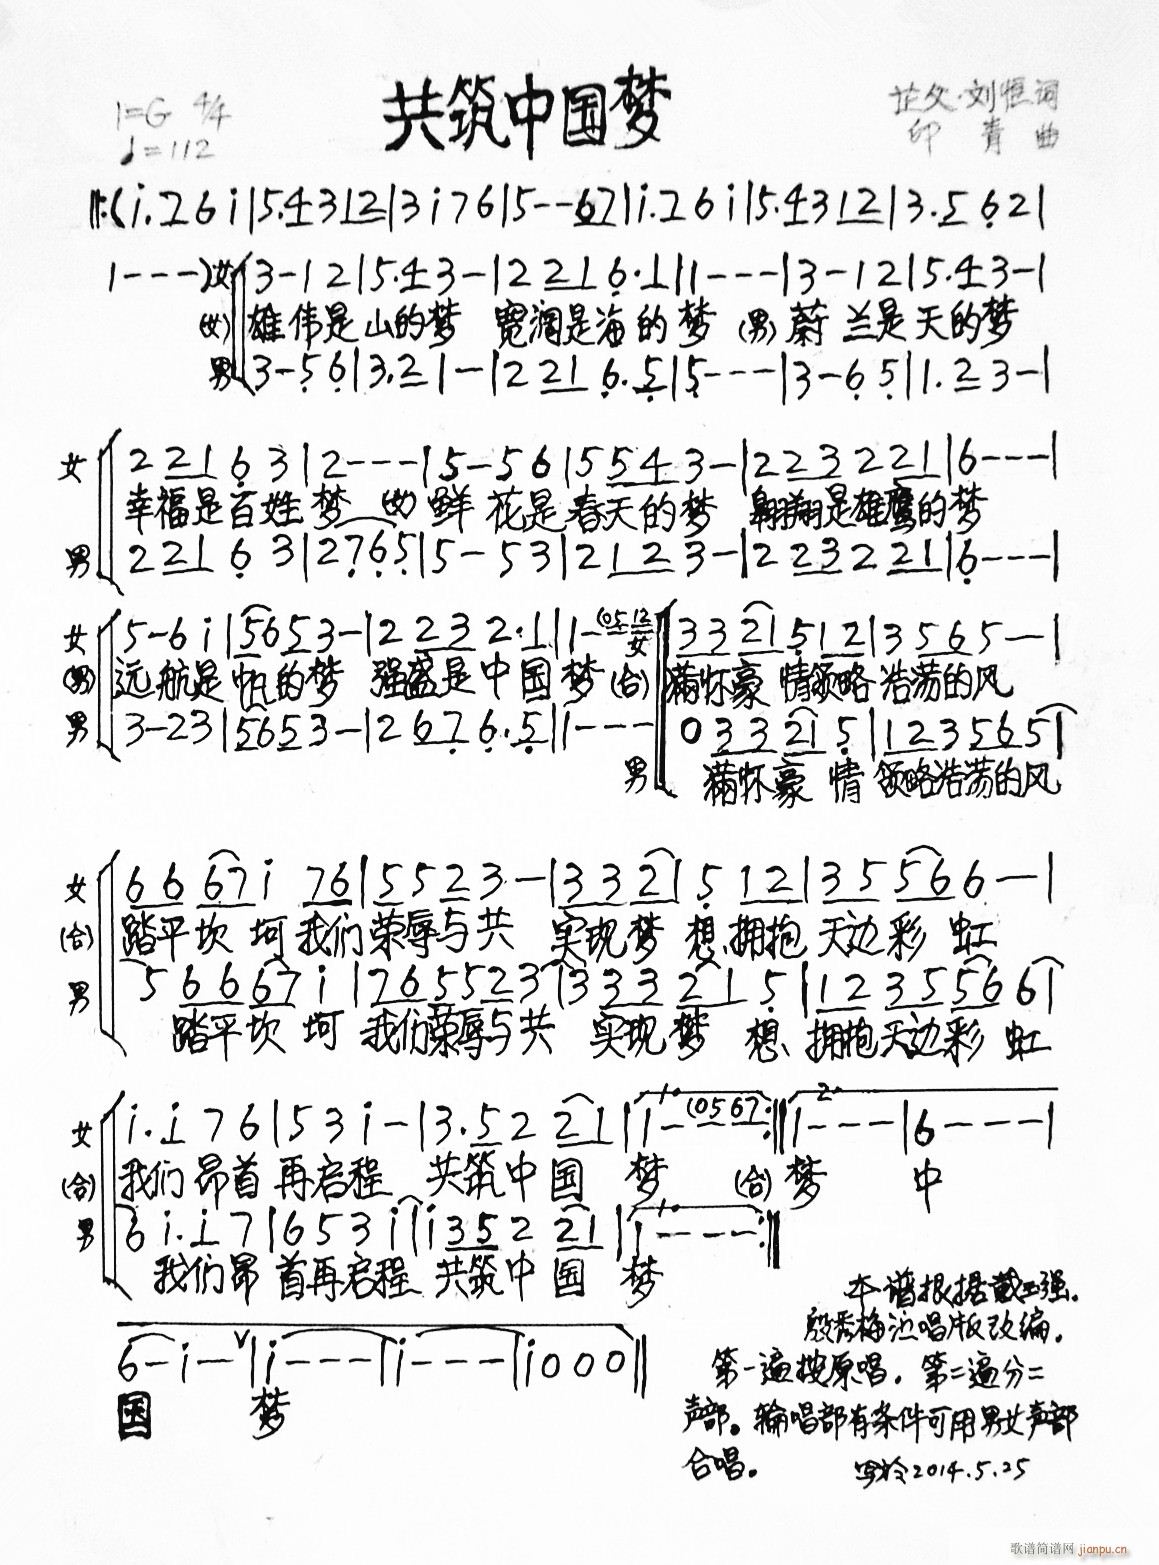 共筑中国梦
1=G 4/4
♩=112
芷父·刘恒词
印青曲
‖:(i.7 6 i|5.4 3 1 2|3 i 7 6|5--6 7|i.7 6 i|5.4 3 1 2|3.5 6 2|
1---)女 3-1 2|5.4 3-|2 2 1 6.1|1---|3-1 2|5.4 3-|
(女)雄伟是山的梦 宽阔是海的梦 (男)蔚兰是天的梦
男 3-5 6|3.2 1-|2 2 1 6.5|5---|3-6 5|1.2 3-|
女 2 2 1 6 3|2---|5-5 6|5 5 4 3-|2 2 3 2 2 1|6---|
幸福是百姓梦 (女)鲜花是春天的梦 翱翔是雄鹰的梦
男 2 2 1 6 3|2 7 6 5|5-5 3|2 1 2 3-|2 2 3 2 2 1|6---|
女 5-6 i|5 6 5 3-|2 2 3 2.1|1-(05 12 女 3 3 2 1 5 1 2|3 5 6 5--|
(男)远航是帆的梦 强盛是中国梦(合)满怀豪情领略浩荡的风
男 3-2 3|5 6 5 3-|2 6 7 6.5|1---|0 3 3 2 1 5|1 2 3 5 6 5|
男 满怀豪情 领略浩荡的风
女 6 6 6 7 i 7 6|5 5 2 3-|3 3 2 1 5 1 2|3 5 5 6 6-|
(合)踏平坎坷我们荣辱与共 实现梦想拥抱天边彩虹
男 5 6 6 6 7 i|7 6 5 5 2 3|3 3 3 2 1 5|1 2 3 5 5 6 6|
踏平坎坷 我们荣辱与共 实现梦想 拥抱天边彩虹
女 i.i 7 6|5 3 i-|3.5 2 2 1|1.1-(0567:‖2.1---|6---|
(合)我们昂首再启程 共筑中国梦 (合)梦 中
男 6 i.i 7|6 5 3 i|i 3 5 2 2 1|1.1---:‖
我们昂首再启程 共筑中国梦
6-i-V|i---|i---|i000‖
国 梦
本谱根据戴玉强.
殷秀梅泣唱版改编.
第一遍按原唱.第二遍分二
声部。输唱部有条件可用男女声部
合唱。
2014.5.25
歌谱简谱网 jianpu.cn